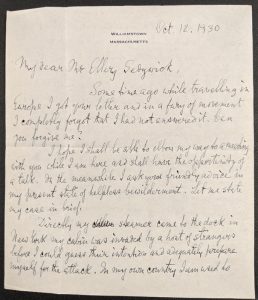 WILLIAMSTOWN
MASSACHUSETTS
Oct 12. 1930
My dear Mr Ellery Sedgwick,
Some time ago while travelling in
Europe I got your letter and in a fury of movement
I completely forgot that I had not answered it. Can
you forgive me?
I hope I shall be able to elbow my way to a meeting
with you while I am here and shall have the opportunity of
a talk. In the meanwhile I ask your friendly advice in
my present state of helpless bewilderment. Let me state
my case in brief.
Directly my steamer came to the dock in
New York my cabin was invaded by a host of strangers
before I could guess their intention and adequately prepare
myself for the attack. In my own country I am used to